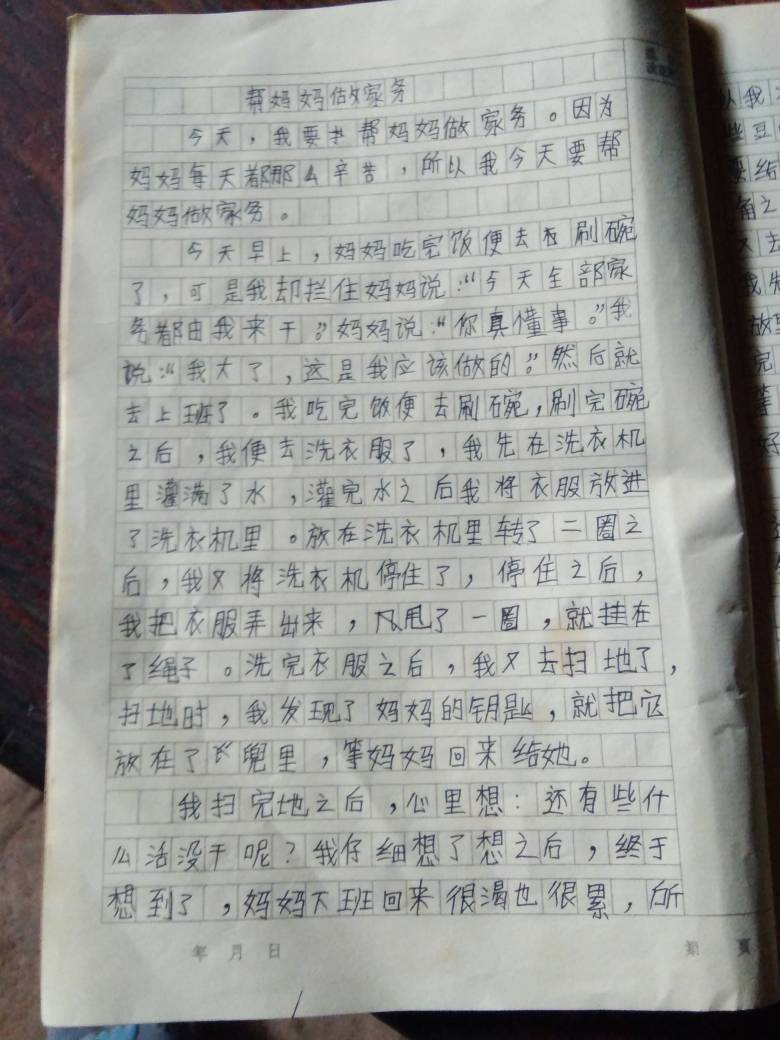 帮妈妈做家务
今天，我要帮妈妈做家务。因为
妈妈每天都那么辛苦，所以我今天要帮
妈妈做家务。
今天早上，妈妈吃完饭便去刷碗
了，可是我却拦住妈妈说：“今天全部家
务都由我来干。”妈妈说：“你真懂事。”我
说：“我大了，这是我应该做的。”然后就
去上班了。我吃完饭便去刷碗，刷完碗
之后，我便去洗衣服了，我先在洗衣机
里灌满了水，灌完水之后我将衣服放进
了洗衣机里。放在洗衣机里转了二圈之
后，我又将洗衣机停住了，停住之后，
我把衣服弄出来，又甩了一圈，就挂在
了绳子。洗完衣服之后，我又去扫地了，
扫地时，我发现了妈妈的钥匙，就把它
放在了兜里，等妈妈回来给她。
我扫完地之后，心里想：还有些什
么活没干呢？我仔细想了想之后，终于
想到了，妈妈下班回来很渴也很累，所
年 月 日
第 頁